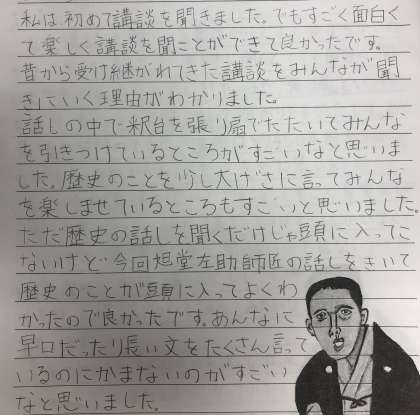 私は初めて講談を聞きました。でもすごく面白く
て楽しく講談を聞ことができて良かったです。
昔から受け継がれてきた講談をみんなが聞
きにいく理由がわかりました。
話しの中で釈台を張り扇でたたいてみんな
を引きつけているところがすごいなと思いま
した。歴史のことを少し大げさに言ってみんな
を楽しませているところもすごいと思いました。
ただ歴史の話しを聞くだけじゃ頭に入ってこ
ないけど今回旭堂左助師匠の話しをきいて
歴史のことが頭に入ってよくわ
かったので良かったです。あんなに
早口だったり長い文をたくさん言って
いるのにかまないのがすごい
なと思いました。